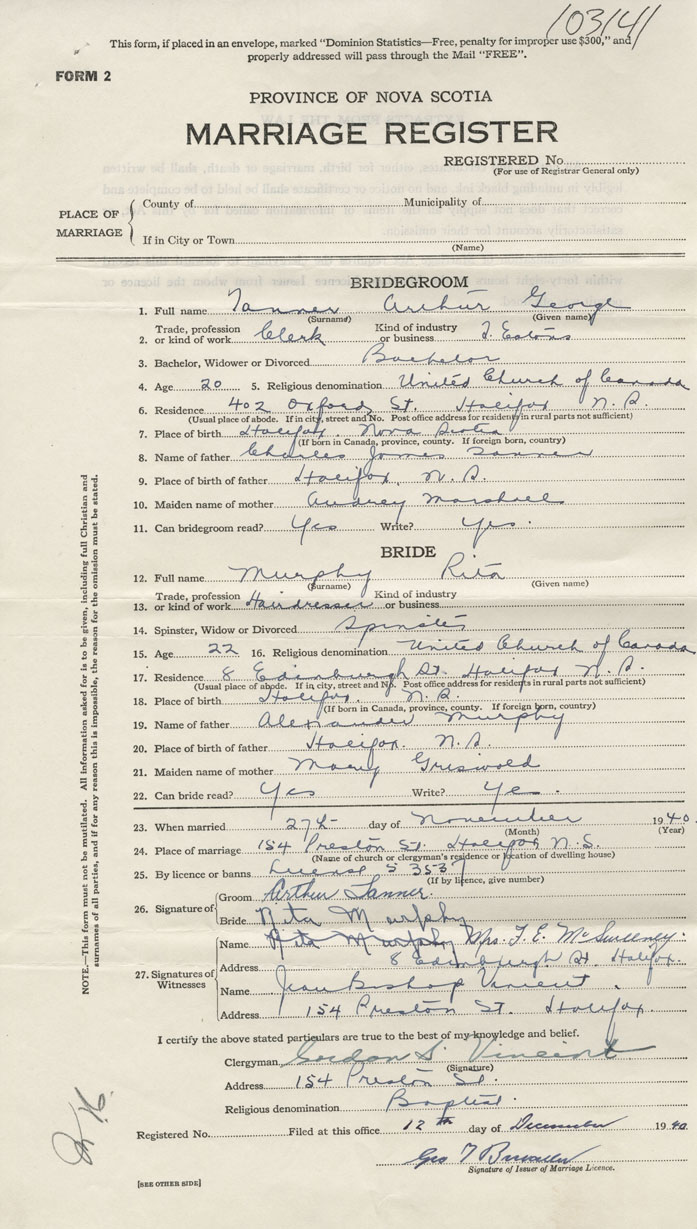 103141
This form, if placed in an envelope, marked "Dominion Statistics—Free, penalty for improper use $300," and
properly addressed will pass through the Mail "FREE".
FORM 2
PROVINCE OF NOVA SCOTIA
MARRIAGE REGISTER
REGISTERED No.
(For use of Registrar General only)
PLACE OF MARRIAGE
County of Municipality of
If in City or Town
(Name)
BRIDEGROOM
1. Full name Tanner Arthur George
(Surname) (Given name)
2. Trade, profession or kind of work Clerk Kind of industry or business T. Eatons
3. Bachelor, Widower or Divorced Bachelor
4. Age 20 5. Religious denomination United Church of Canada
6. Residence 402 Oxford St. Halifax N.S.
(Usual place of abode. If in city, street and No. Post office address for residents in rural parts not sufficient)
7. Place of birth Halifax Nova Scotia
(If born in Canada, province, county. If foreign born, country)
8. Name of father Charles James Tanner
9. Place of birth of father Halifax, N.S.
10. Maiden name of mother Audrey Marshall
11. Can bridegroom read? Yes Write? Yes.
BRIDE
12. Full name Murphy Rita
(Surname) (Given name)
13. Trade, profession or kind of work Hairdresser Kind of industry or business
14. Spinster, Widow or Divorced Spinster
15. Age 22 16. Religious denomination United Church of Canada
17. Residence 8 Edinburgh St. Halifax N.S.
(Usual place of abode. If in city, street and No. Post office address for residents in rural parts not sufficient)
18. Place of birth Halifax. N.S.
(If born in Canada, province, county. If foreign born, country)
19. Name of father Alexander Murphy
20. Place of birth of father Halifax. N.S.
21. Maiden name of mother Griswold
22. Can bride read? Yes Write? Yes.
23. When married 27th day of November 1940.
(Month) (Year)
24. Place of marriage 154 Preston St. Halifax N.S.
(Name of church or clergyman's residence or location of dwelling house)
25. By licence or banns License 5353
(If by licence, give number)
26. Signature of Groom Arthur Tanner.
Bride Rita Murphy
27. Signatures of Witnesses
Name Rita Murphy Mrs. T. E. McSweeney.
Address 8 Edinburgh St. Halifax.
Name Jean Bishop Vincent.
Address 154 Preston St. Halifax.
I certify the above stated particulars are true to the best of my knowledge and belief.
Clergyman Gordon S. Vincent
(Signature)
Address 154 Preston St.
Religious denomination Baptist.
Registered No. Filed at this office 12th day of December 1940
Geo T
Signature of Issuer of Marriage Licence.
[SEE OTHER SIDE]
NOTE.—This form must not be mutilated. All information asked for is to be given, including full Christian and
surnames of all parties, and if for any reason this is impossible, the reason for the omission must be stated.